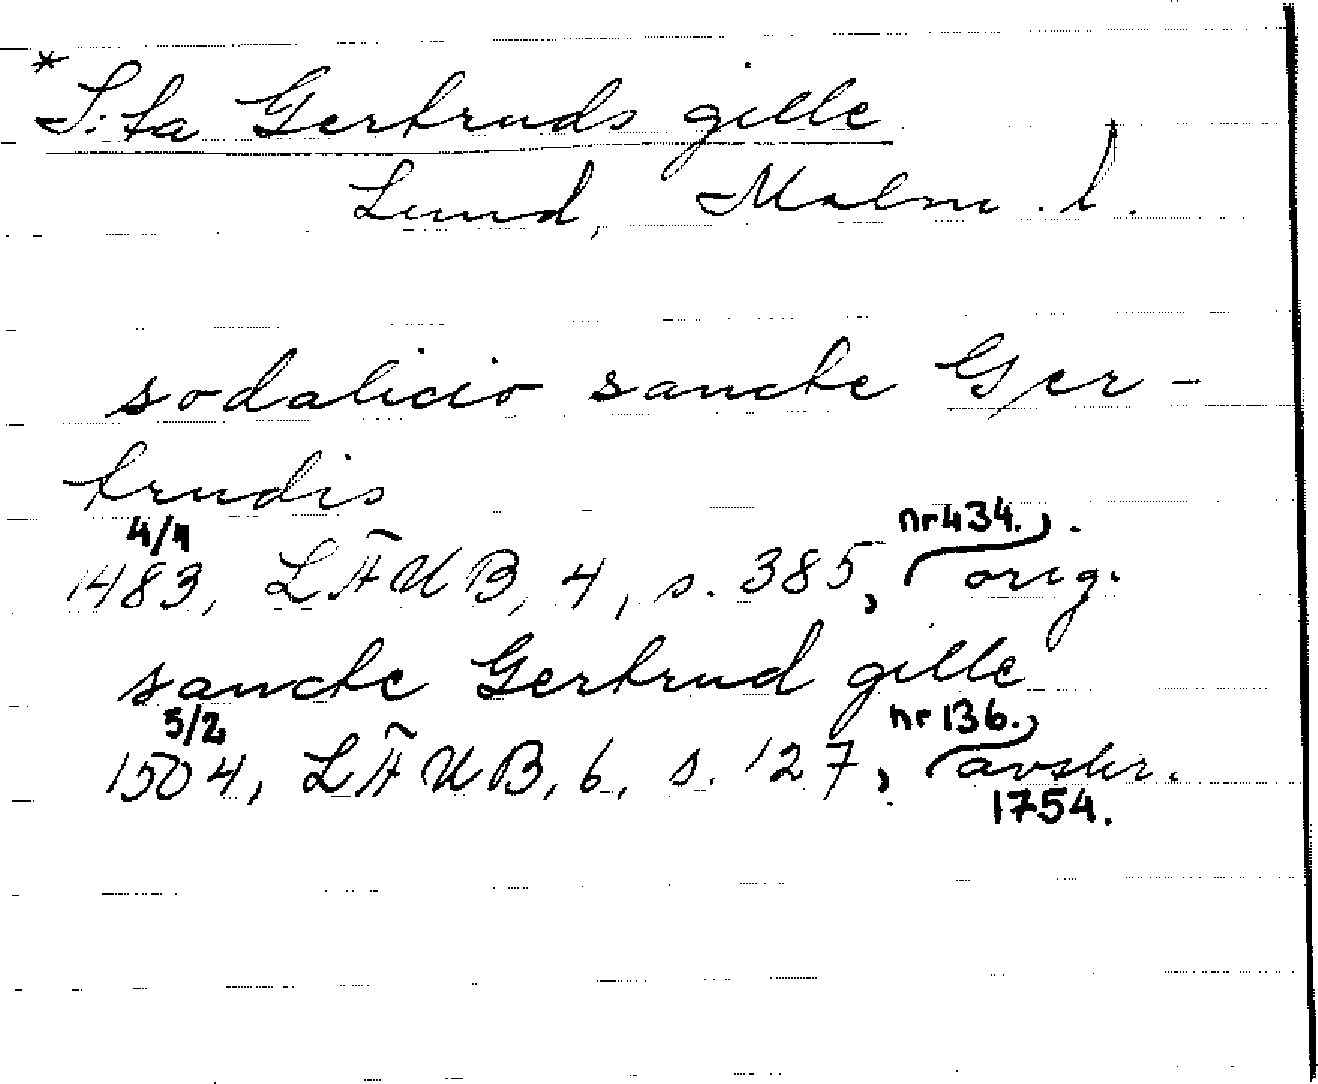 * S:ta Gertruds gille
Lund, Malm. l.
sodalicio sancte Ger-
trudis
4/4
1483, LÄUB, 4, s. 385, nr 434., orig.
sancte Gertrud gille
5/2
1504, LÄUB, 6, s. 127, nr 136., avskr.
1754.